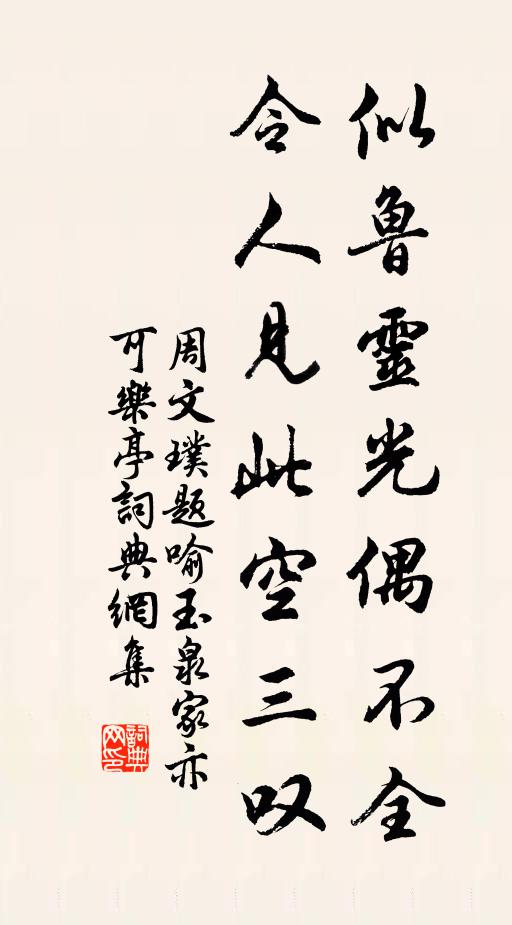 似魯靈光偶不全
令人見此空三叹
周文璞题喻玉泉家亦
可樂亭詞典網集
詞典
网印